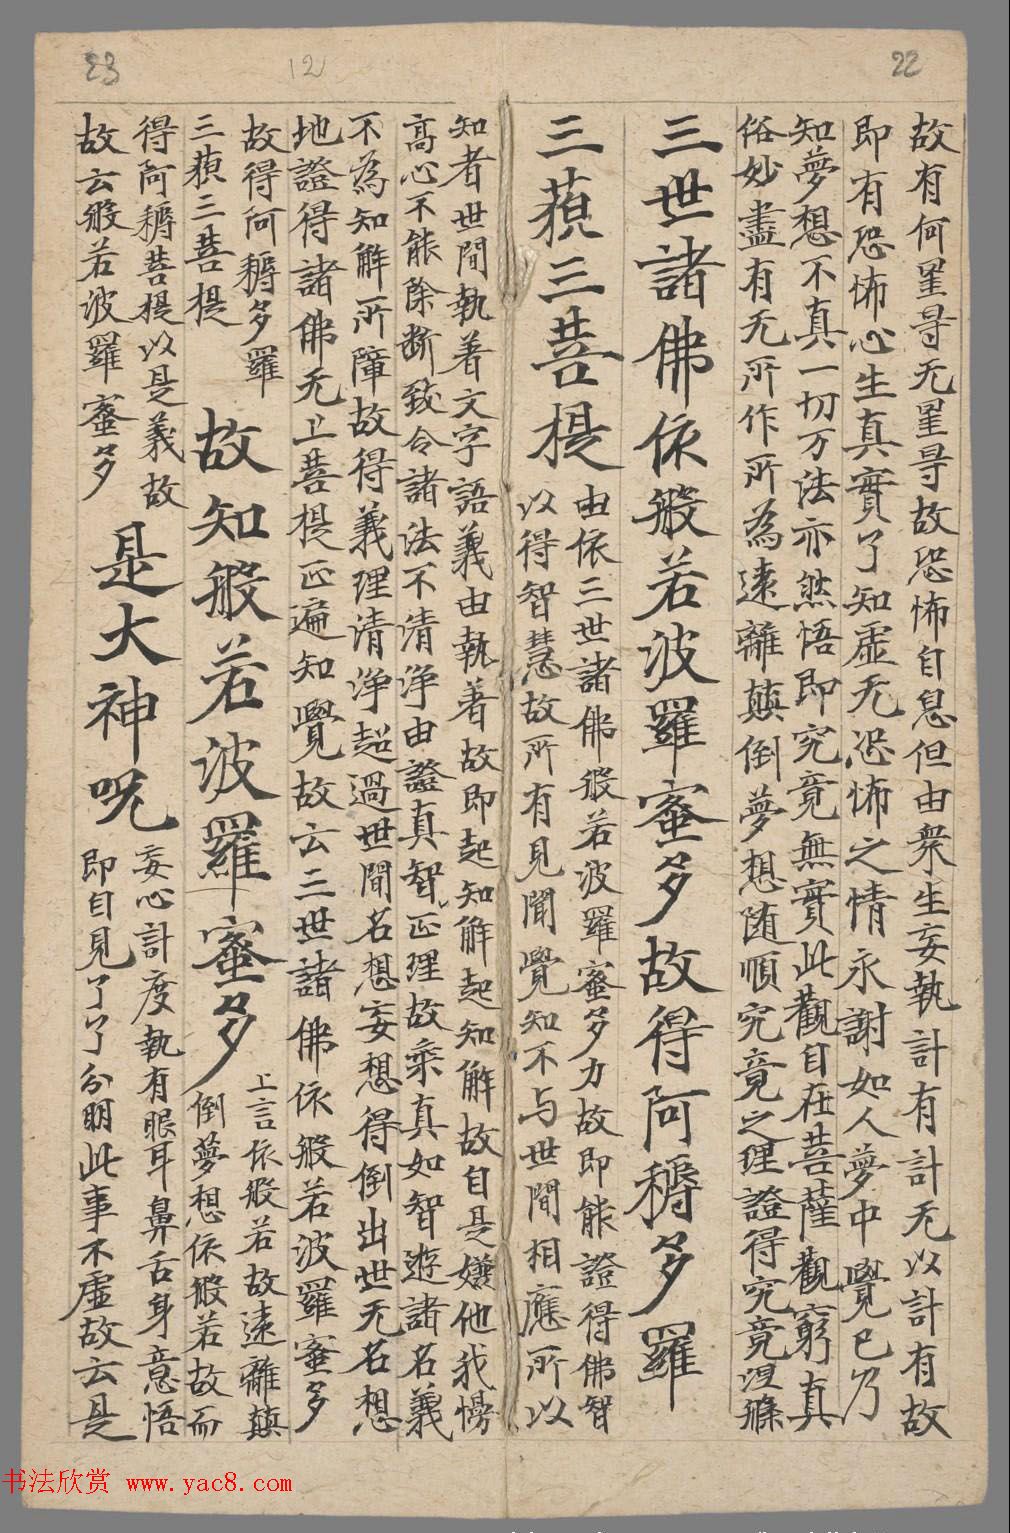 22
故有何罣㝵无罣㝵故恐怖自息但由衆生妄執計有計无以計有故
即有恐怖心生真實了知虛无恐怖之情永謝如人夢中覺已乃
知夢想不真一切万法亦然悟即究竟無實此觀自在菩薩觀窮真
俗妙盡有无所作所為遠離顛倒夢想随順究竟之理證得究竟涅槃
三世諸佛依般若波羅蜜多故得阿耨多羅
三藐三菩提
由依三世諸佛般若波羅蜜多力故即能證得佛智
以得智慧故所有見聞覺知不与世間相應所以
12
23
知者世間執著文字語義由執著故即起知解起知解故自是嫌他我慢
高心不能除断致令諸法不清淨由證真智正理故乘真如智遊諸名義
不為知解所障故得義理清淨超過世間名想妄想得倒出世无名想
地證得諸佛无上菩提正遍知覺故云三世諸佛依般若波羅蜜多
故得阿耨多羅
三藐三菩提
故知般若波羅蜜多
上言依般若故遠離顛
倒夢想依般若故而
得阿耨菩提以是義故
故云般若波羅蜜多
是大神呪
妄心計度執有眼耳鼻舌身意悟
即自見了了分明此事不虛故云是
书法欣赏 www.yac8.com